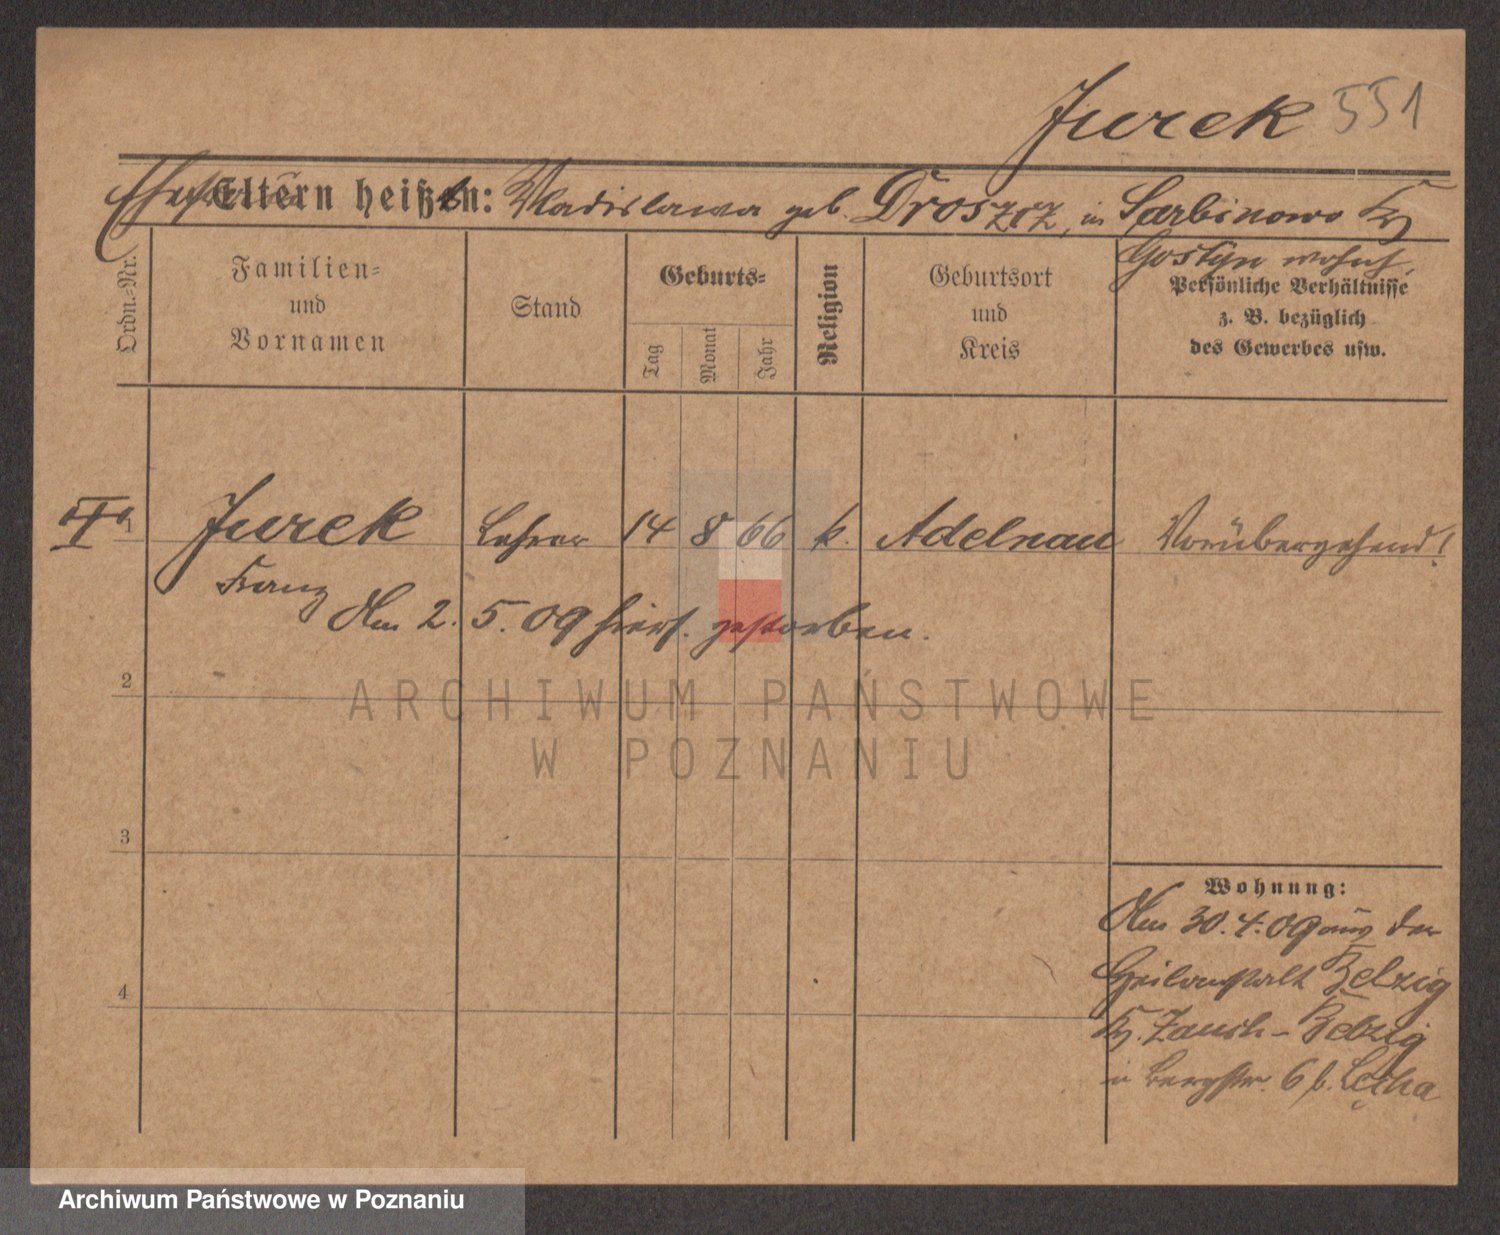 Jurek 551
Eltern heißen: Wladislawa geb. Droszcz, in Sarbinowo Kr.
Gostyn wohnh.
Ordn.-Nr.
Familien-
und
Vornamen
Stand
Geburts-
Tag
Monat
Jahr
Religion
Geburtsort
und
Kreis
Persönliche Verhältnisse
z. B. bezüglich
des Gewerbes usw.
I 1 Jurek Lehrer 14 8 66 k. Adelnau Vorübergehend!
Franz
Am 2. 5. 09 hiers. gestorben.
2
ARCHIWUM PAŃSTWOWE
W POZNANIU
3
Wohnung:
Am 30. 4. 09 aus der
Heilanstalt Belzig
4
Kr. Zauch-Belzig
in Bergstr. 6 b.
Archiwum Państwowe w Poznaniu